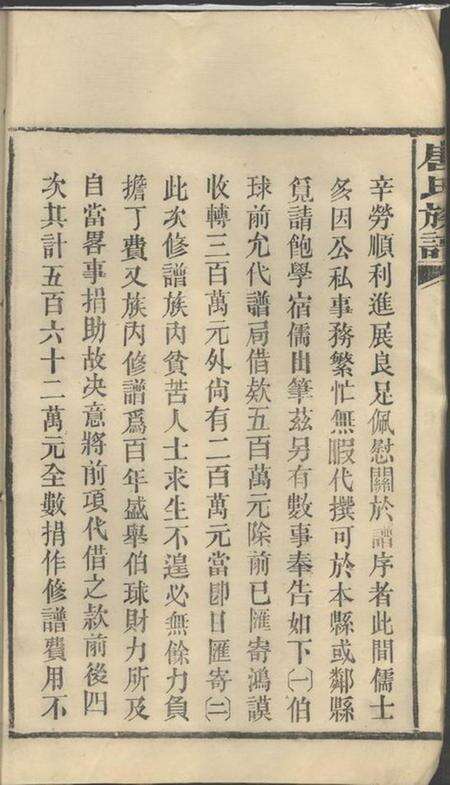 唐氏族譜
辛勞順利進展良足佩慰關於譜序者此間儒士
多因公私事務繁忙無暇代撰可於本縣或鄰縣
覓請飽學宿儒出筆茲另有數事奉告如下㈠伯
球前允代譜局借欵五百萬元除前已匯寄鴻謨
收轉三百萬元外尙有二百萬元當卽日匯寄㈡
此次修譜族內貧苦人士求生不遑必無餘力負
擔丁費又族內修譜爲百年盛舉伯球財力所及
自當畧事捐助故决意將前項代借之款前後四
次其計五百六十二萬元全數捐作修譜費用不